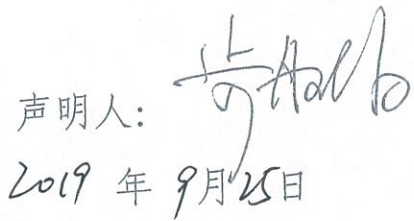 声明人：
2019 年 9月25日